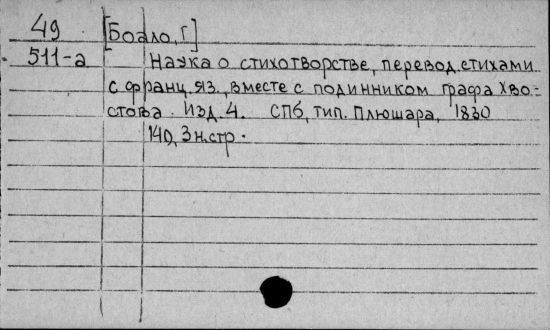 49 [Боало, Г]
511-а Наука о стихотворстве, перевод стихами
с франц. яз., вместе с подинником графа Хво-
стова. Изд. 4. СПб, тип. Плюшара, 1830
140, 3 н.стр.